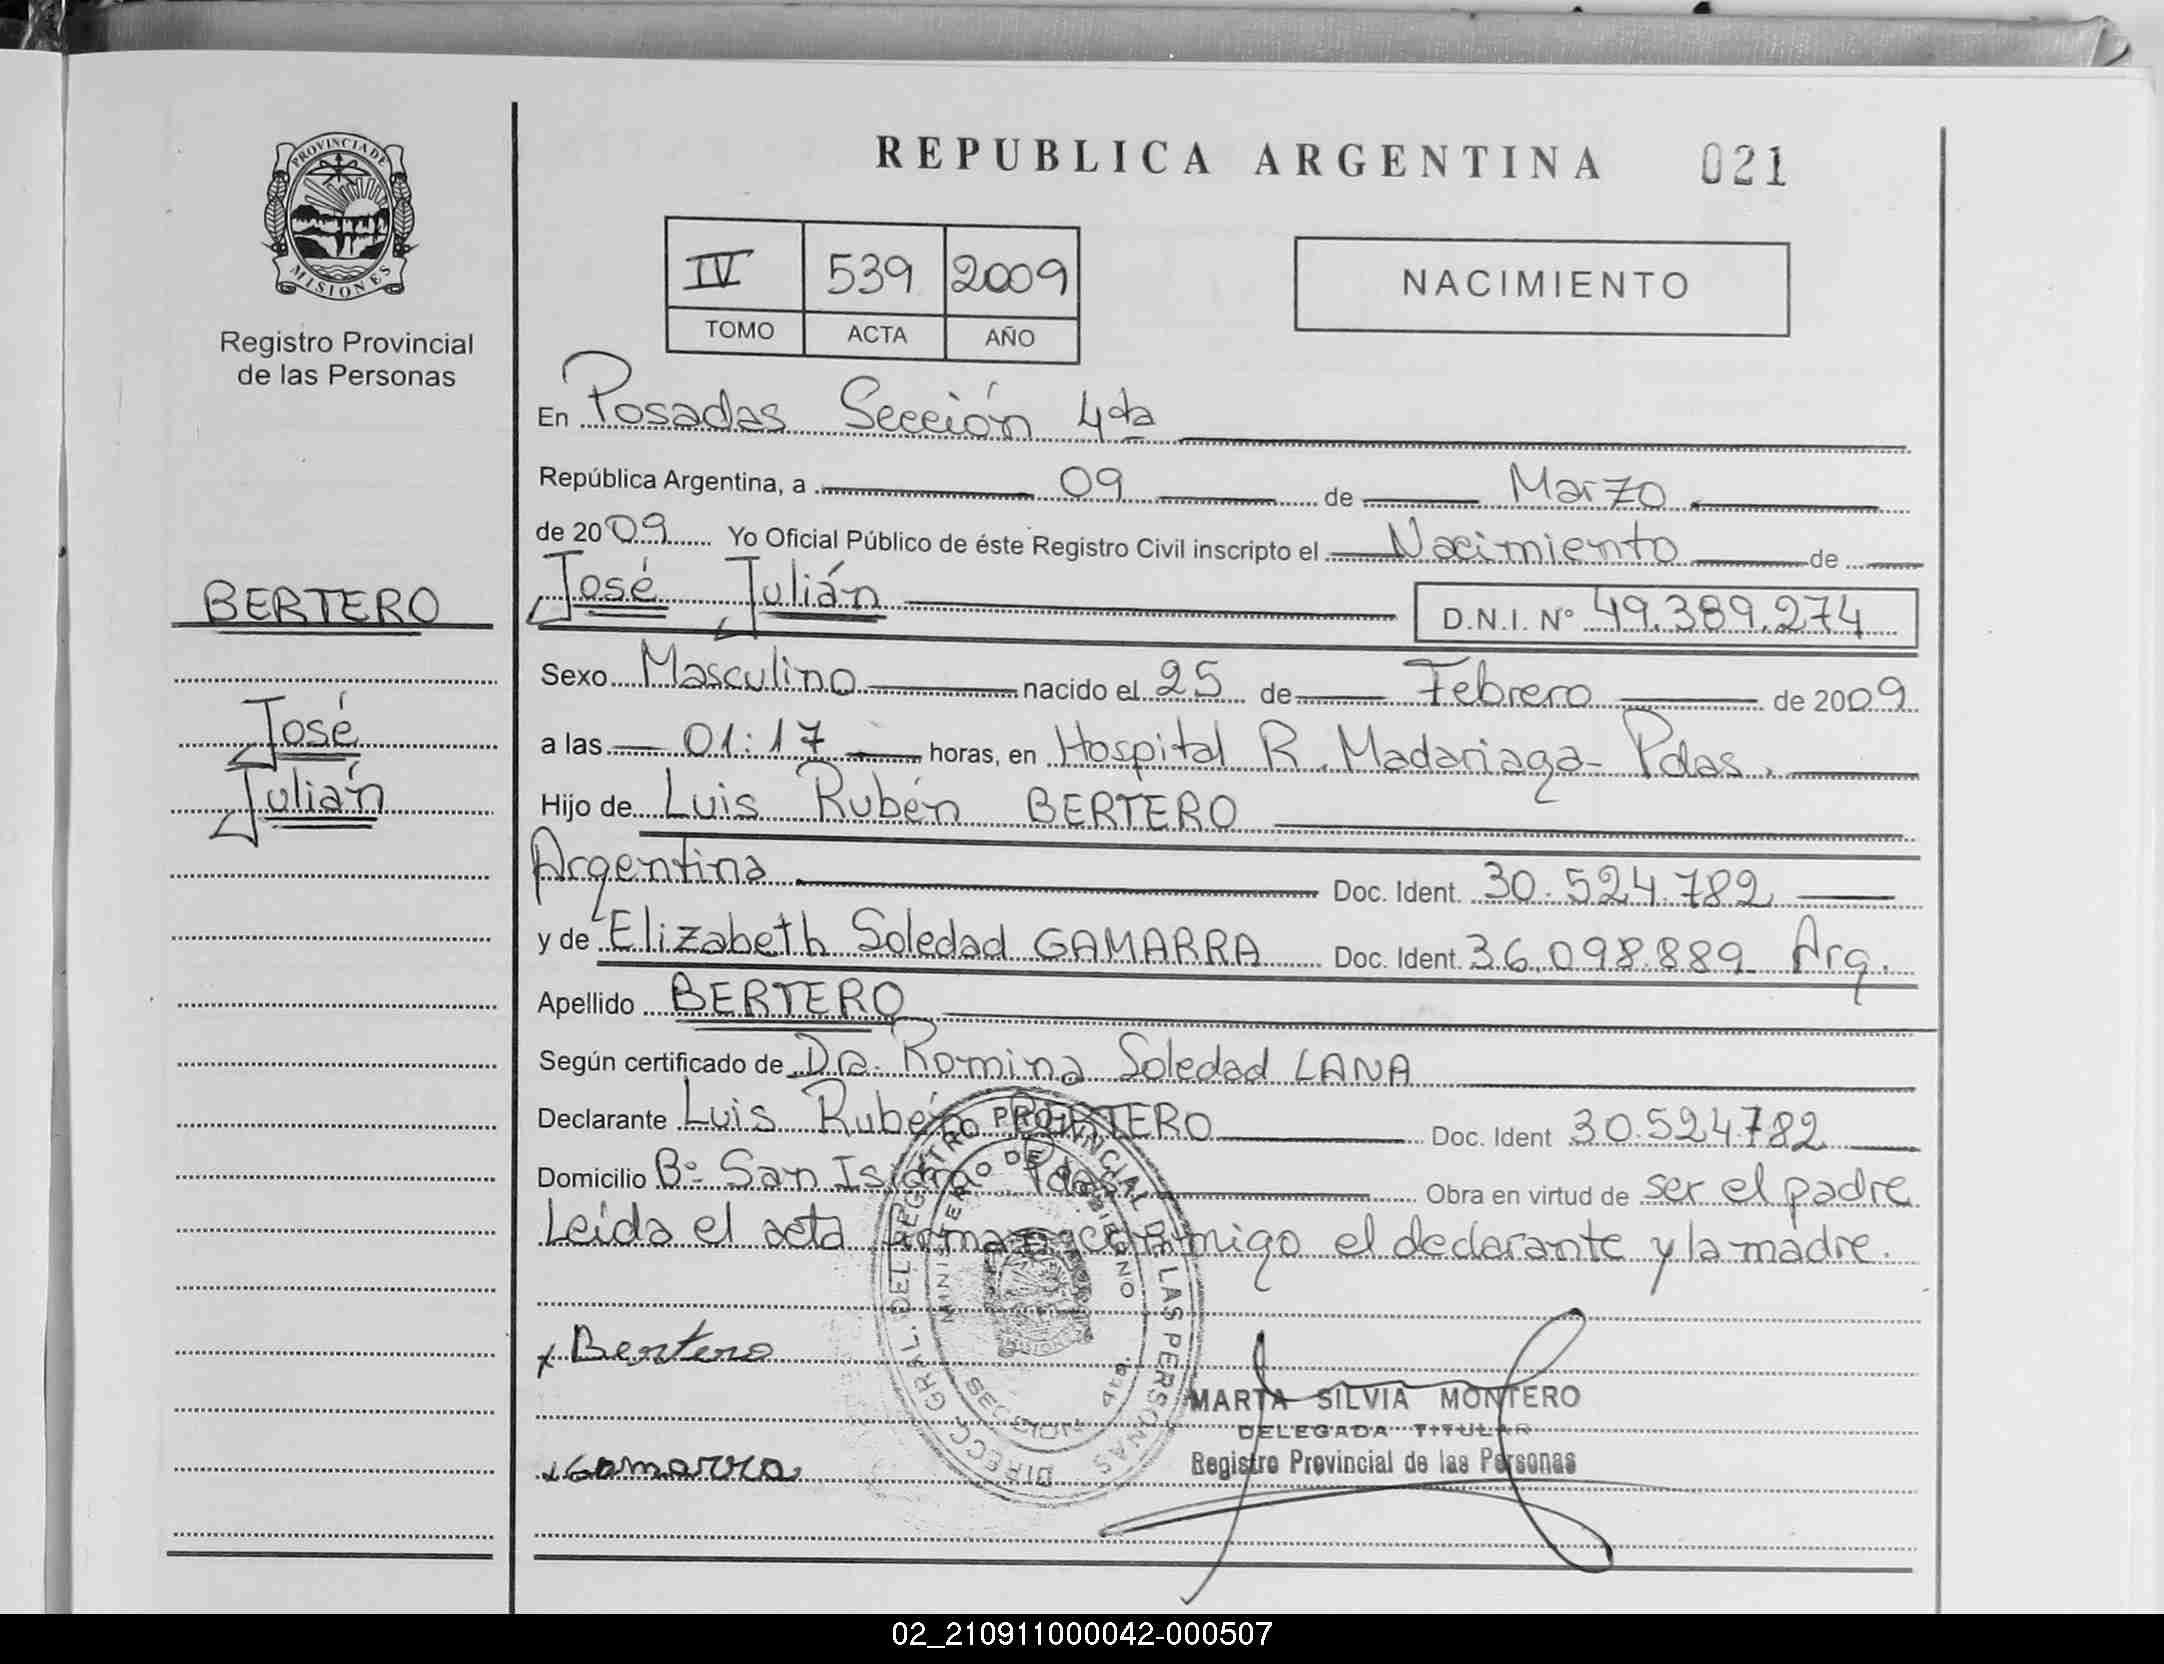 PROVINCIA DE
MISIONES
Registro Provincial
de las Personas
BERTERO
José
Julián
REPUBLICA ARGENTINA 021
IV 539 2009
TOMO ACTA AÑO
NACIMIENTO
En Posadas Sección 4ta
República Argentina, a 09 de Marzo
de 2009 Yo Oficial Público de éste Registro Civil inscripto el Nacimiento de
José Julián D.N.I. Nº 49.389.274
Sexo Masculino nacido el 25 de Febrero de 2009
a las 01:17 horas, en Hospital R. Madariaga - Pdas.
Hijo de Luis Rubén BERTERO
Argentina Doc. Ident. 30.524.782
y de Elizabeth Soledad GAMARRA Doc. Ident. 36.098.889 Arg.
Apellido BERTERO
Según certificado de Dra. Romina Soledad LANA
Declarante Luis Rubén BERTERO Doc. Ident 30.524.782
Domicilio Bº San Isidro Pdas. Obra en virtud de ser el padre
Leida el acta firman conmigo el declarante y la madre.
DIRECC. GRAL. DEL REGISTRO PROVINCIAL DE LAS PERSONAS
MINISTERIO DE GOBIERNO
MISIONES
x Bertero
x Gamarra
MARTA SILVIA MONTERO
DELEGADA TITULAR
Registro Provincial de las Personas
02_210911000042-000507